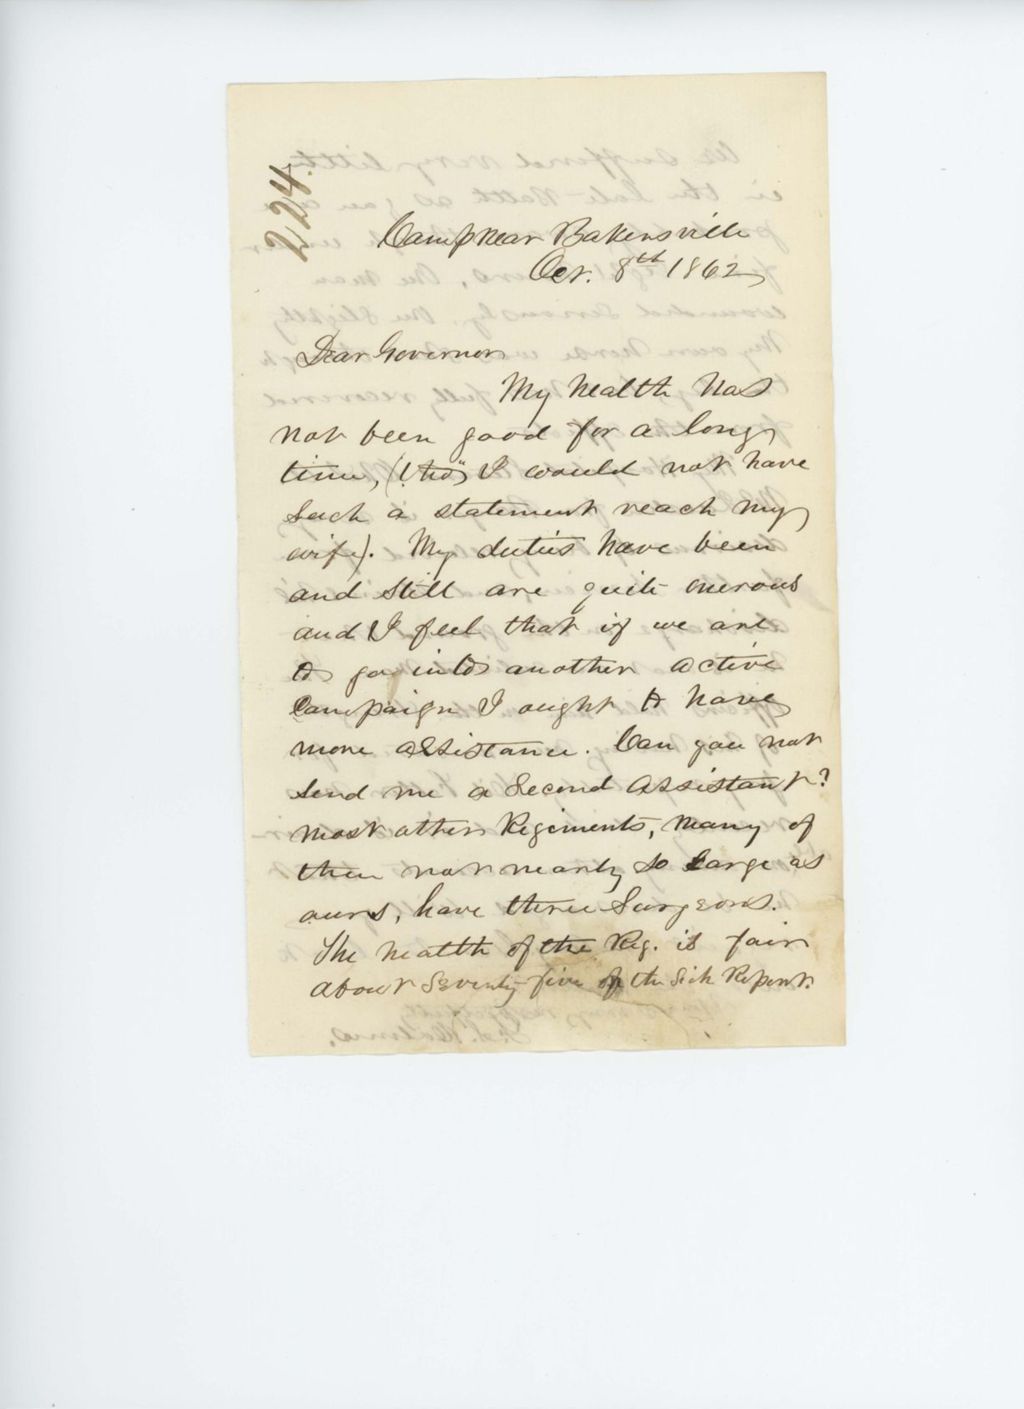 224.
Camp near Bakersville
Oct. 8th 1862
Dear Governor
My health has
not been good for a long
time, (tho' I would not have
such a statement reach my
wife). My duties have been
and still are quite onerous
and I feel that if we are
to go into another active
Campaign I ought to have
more assistance. Can you not
send me a Second Assistant?
Most other Regiments, many of
them not nearly so large as
ours, have three Surgeons.
The health of the Reg. is fair
about Seventy-five of the Sick Report.